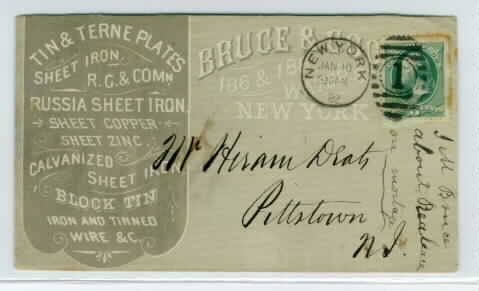 TIN & TERNE PLATES
SHEET IRON
R.G. & COMN
RUSSIA SHEET IRON.
SHEET COPPER
SHEET ZINC
GALVANIZED
SHEET IRON
BLOCK TIN
IRON AND TINNED
WIRE &C.
BRUCE &
186 & 18
NEW YORK
NEW YORK
JAN 10
1
Mr Hiram Deats
Pittstown
N.J.
J M Bruce
about
on